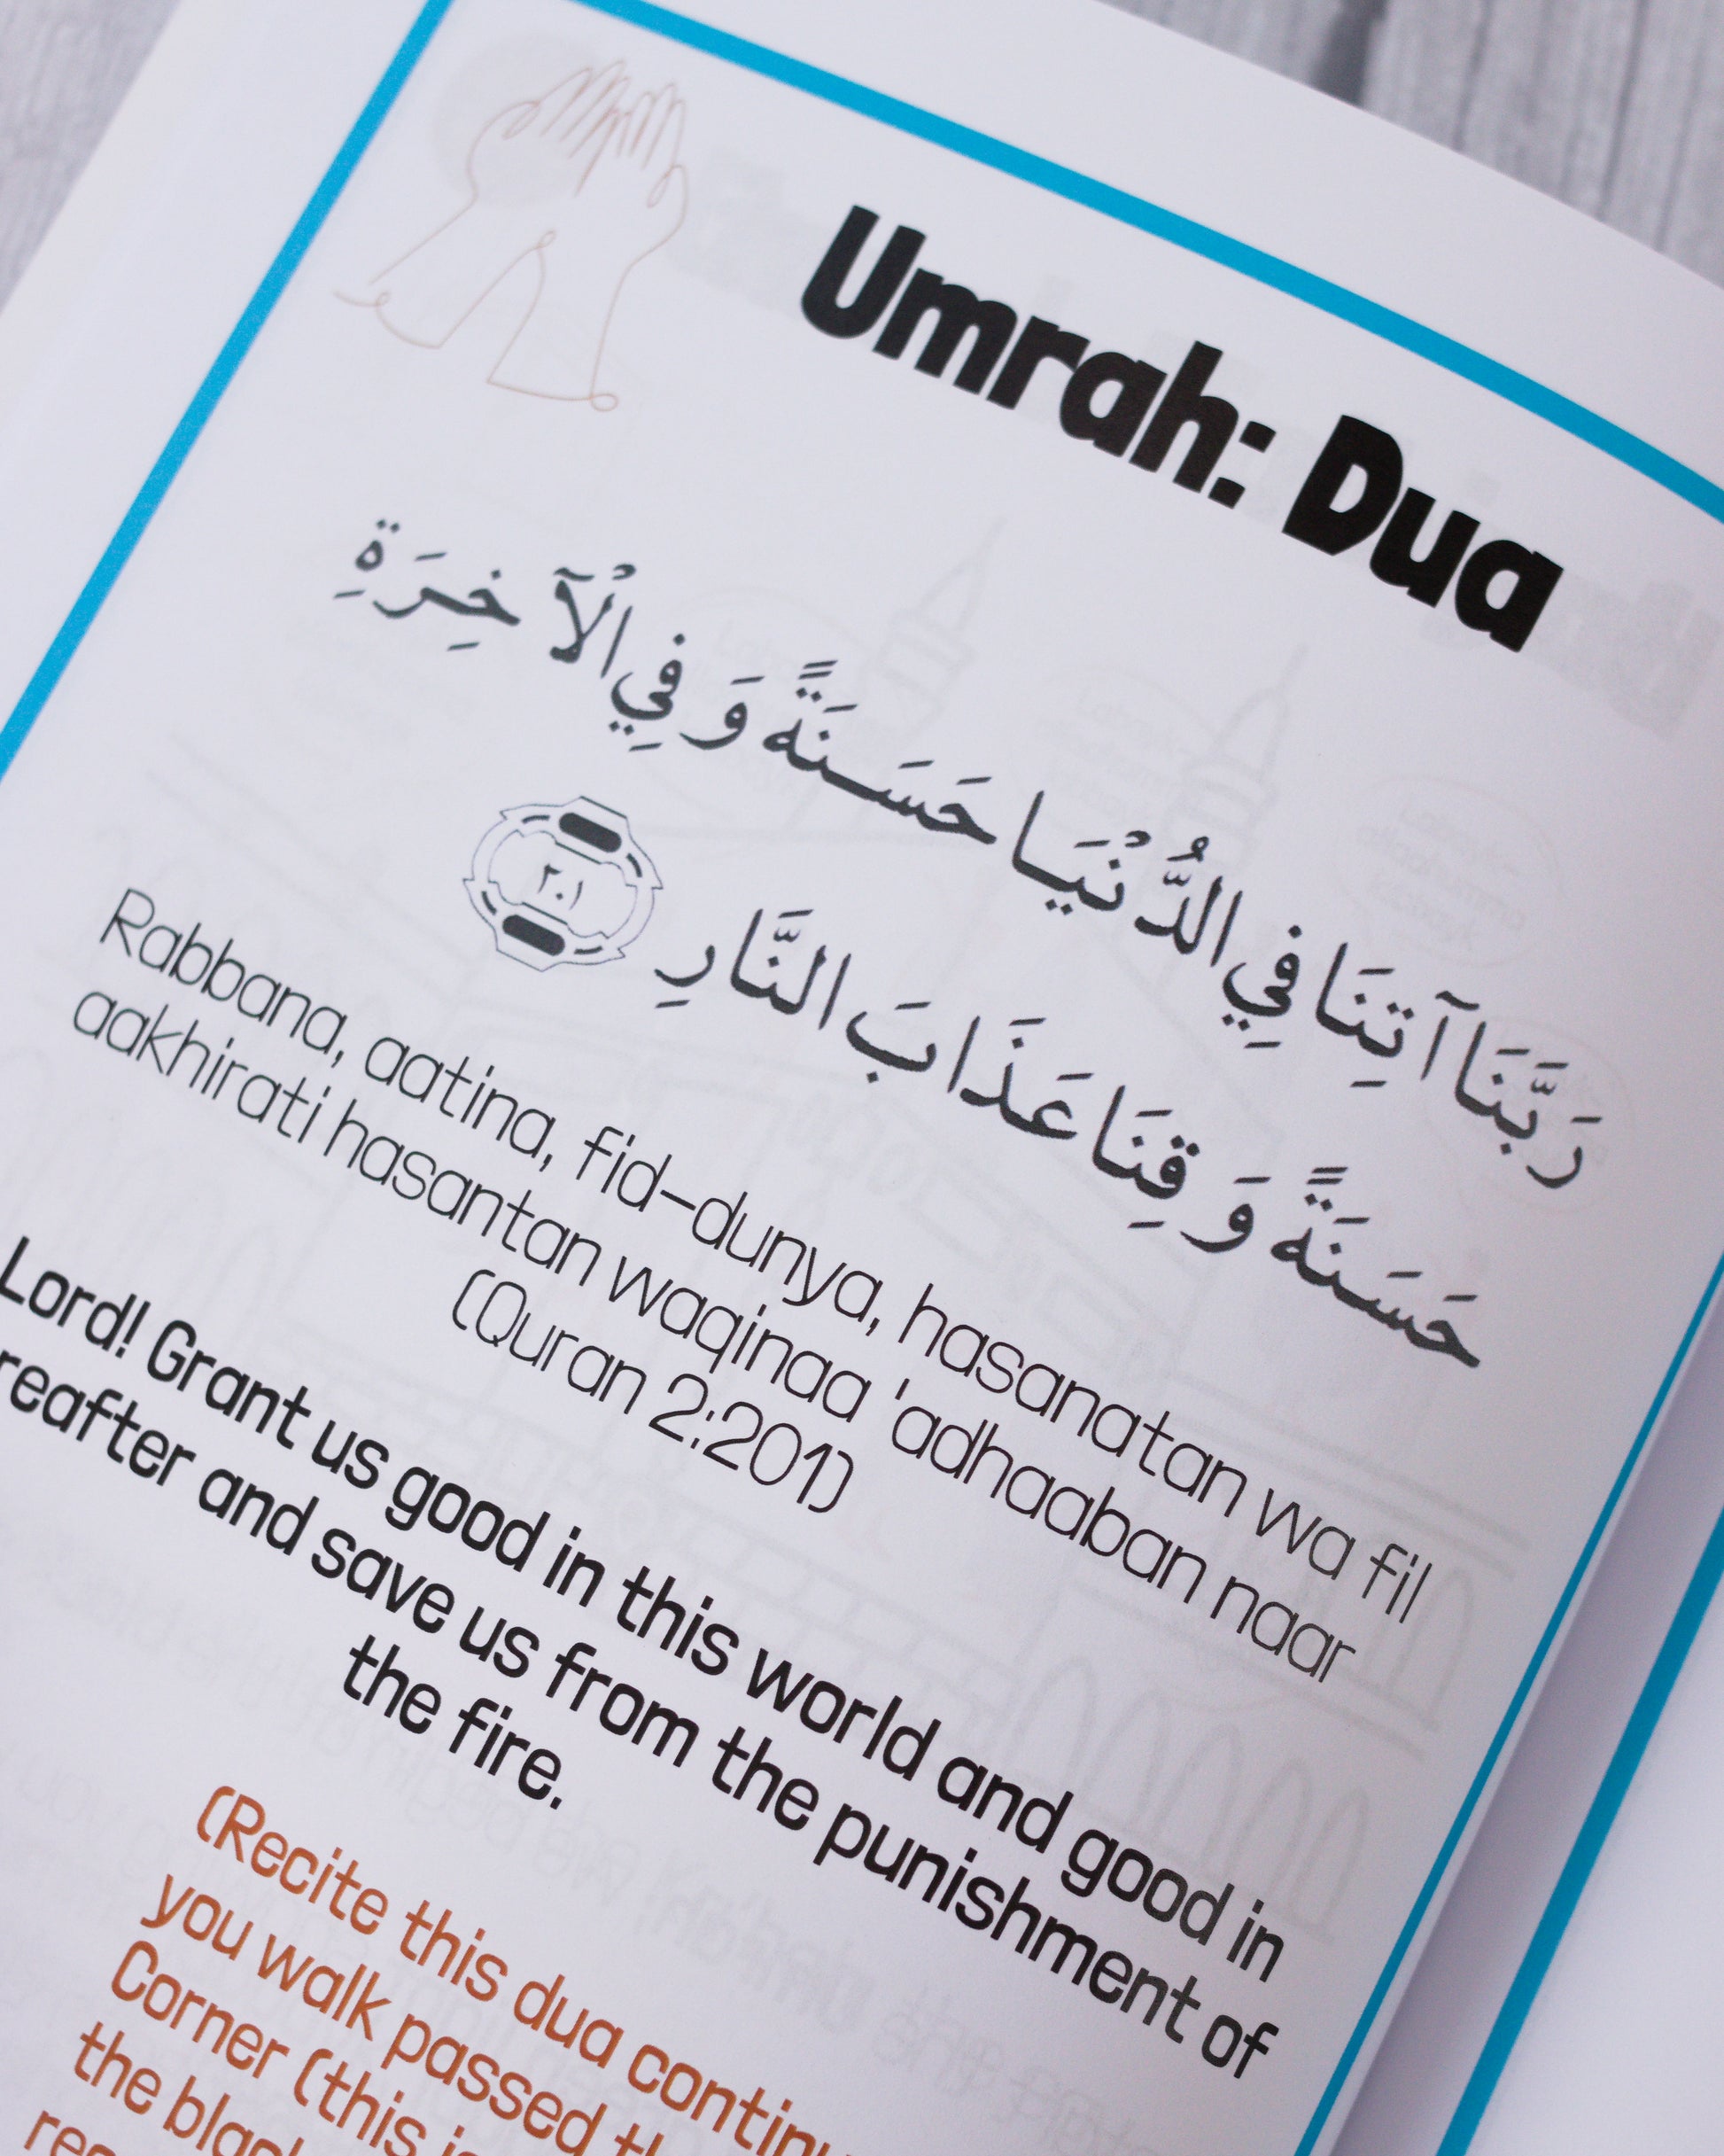 Umrah: Dua
رَبَّنَا آتِنَا فِي الدُّنْيَا حَسَنَةً وَ فِي الْآخِرَةِ
حَسَنَةً وَ قِنَا عَذَابَ النَّارِ ٢٠١
Rabbana, aatina, fid-dunya, hasanatan wa fil
aakhirati hasantan waqinaa 'adhaaban naar
(Quran 2:201)
Lord! Grant us good in this world and good in
reafter and save us from the punishment of
the fire.
(Recite this dua contin
you walk passed th
Corner (this is
the blac